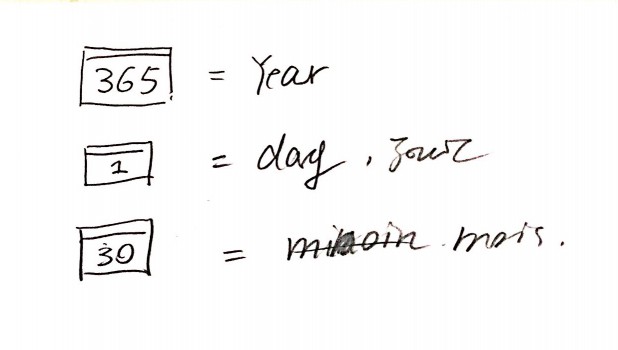 365 = Year
1 = day, jour
30 = mois.